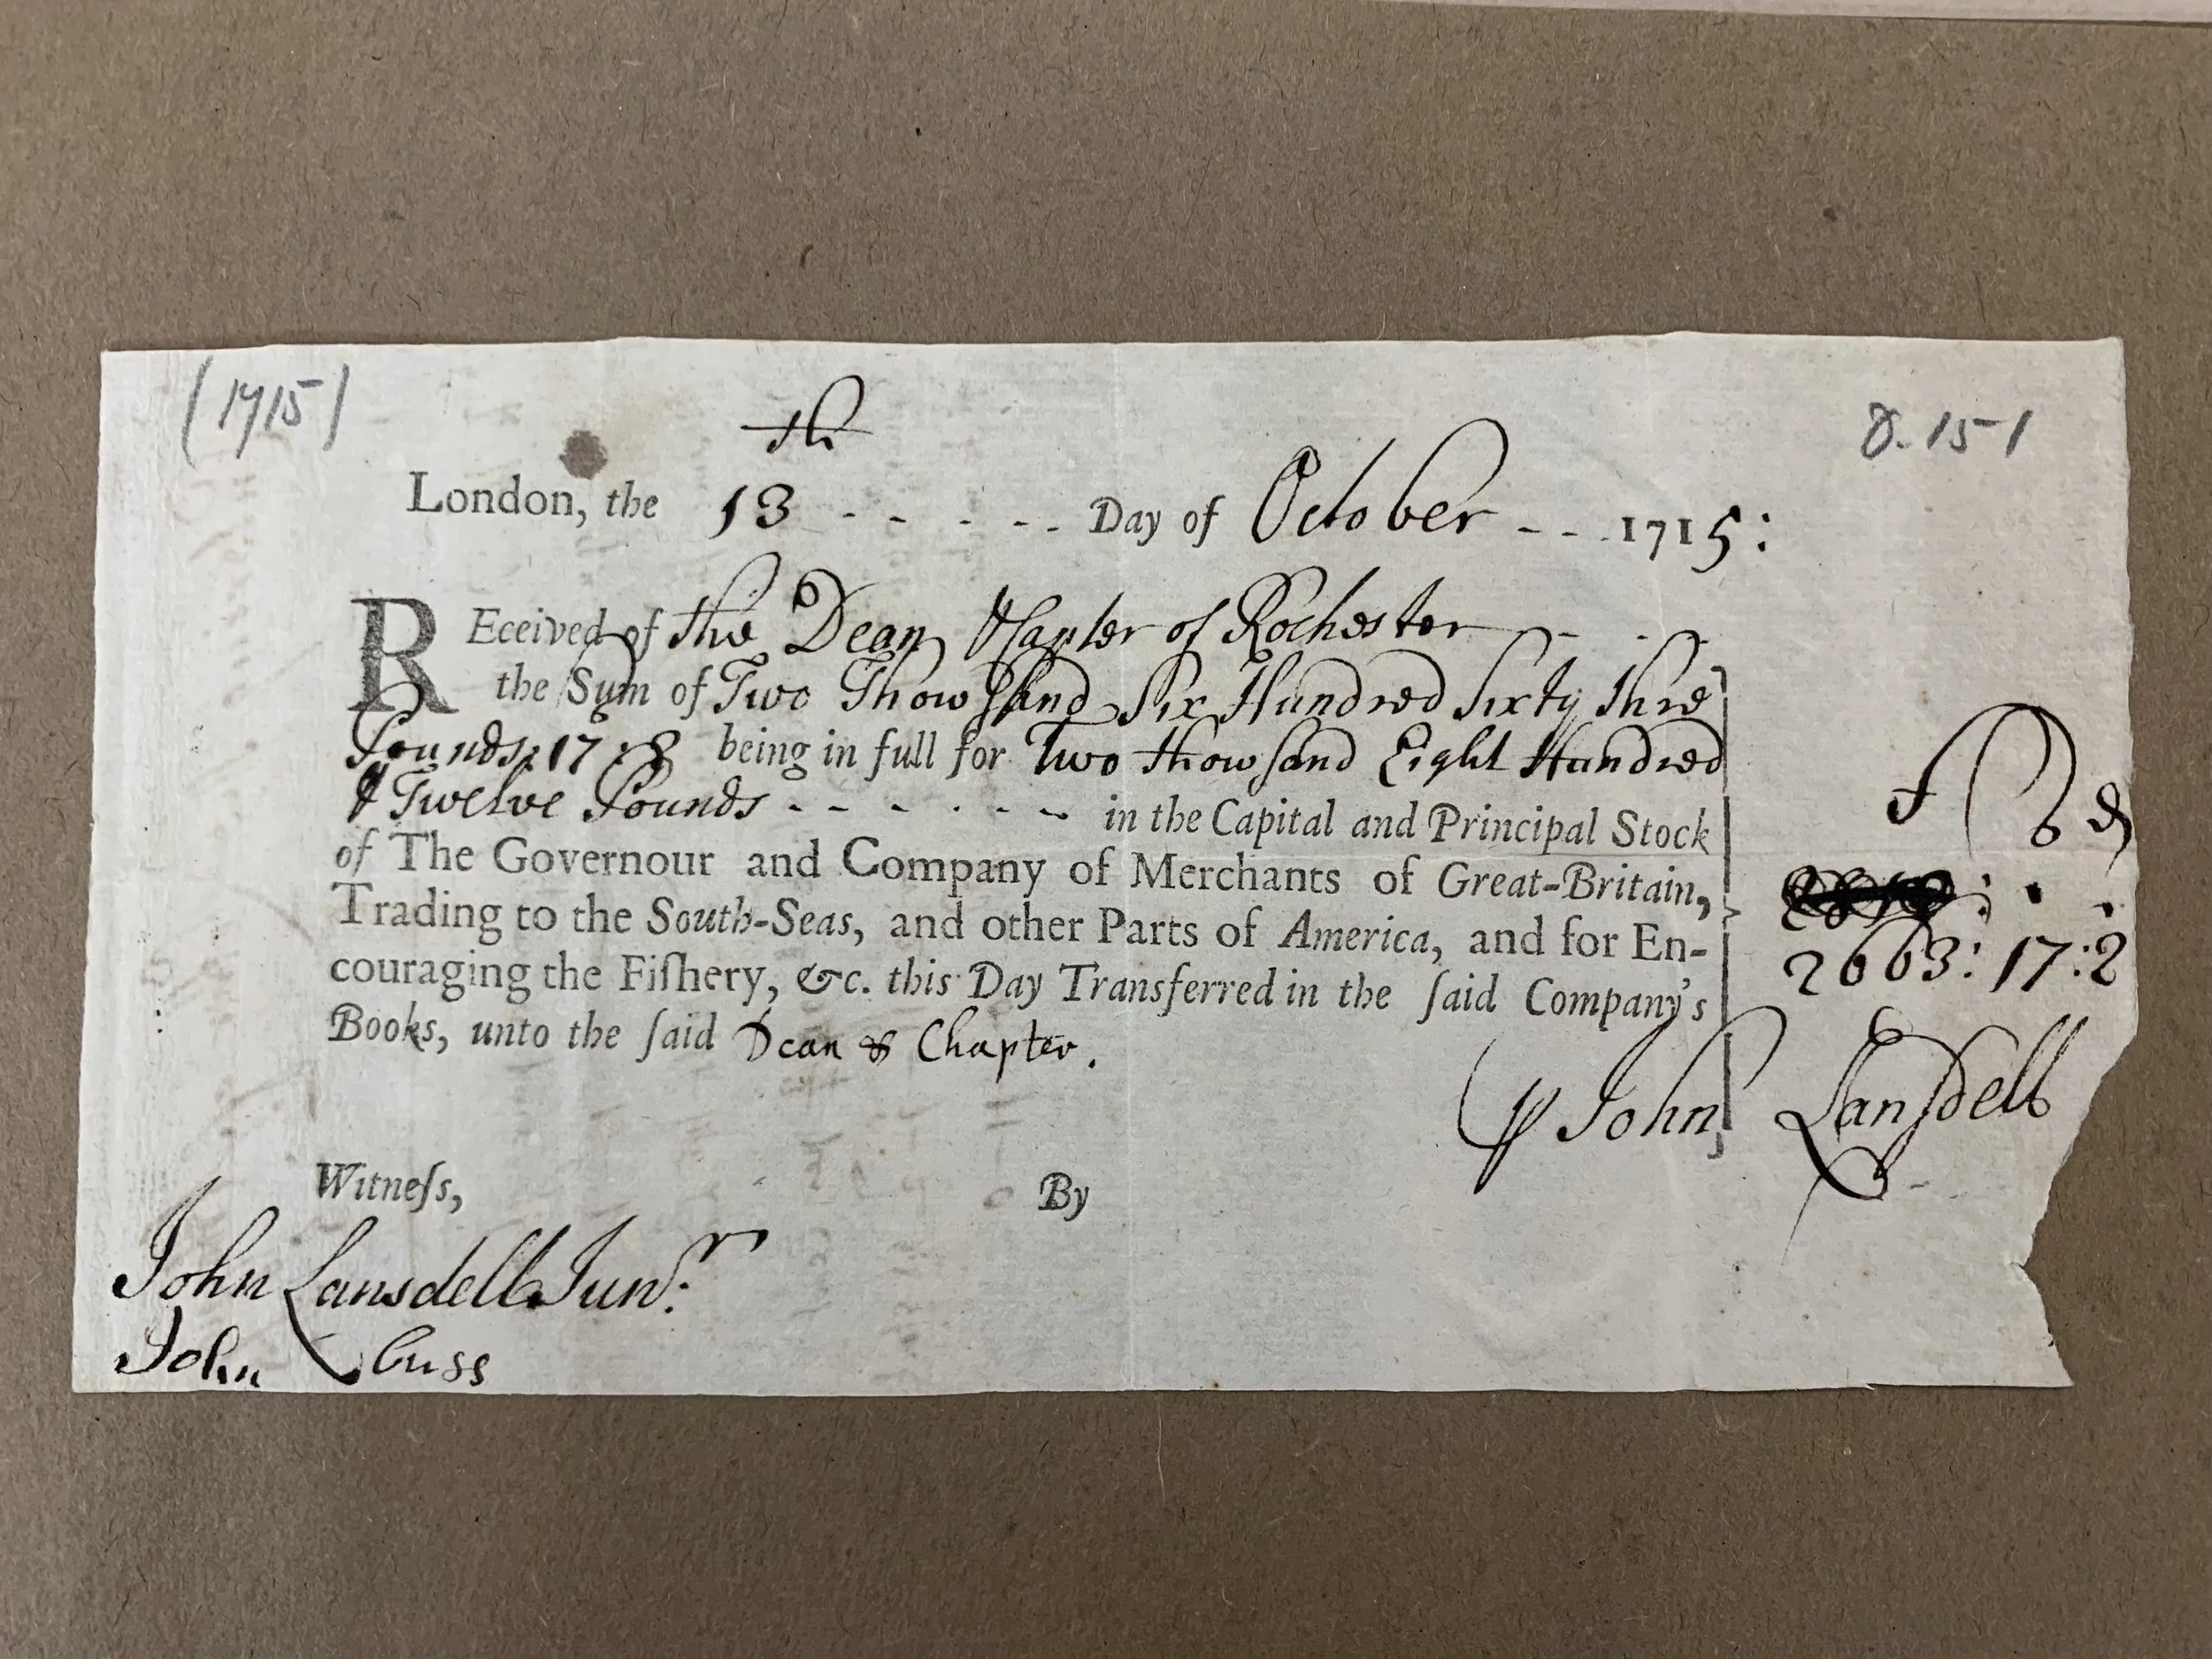 (1715)
8.151
th
London, the 13 - - - - - Day of October - - 1715:
REceived of the Dean & Chapter of Rochester - - -
the Sum of Two Thowsand Six Hundred Sixty thre
Pounds: 17 : 2 being in full for Two thowsand Eight Hundred
& Twelve Pounds - - - - - - in the Capital and Principal Stock
of The Governour and Company of Merchants of Great-Britain,
Trading to the South-Seas, and other Parts of America, and for En-
couraging the Fiſhery, &c. this Day Transferred in the ſaid Company's
Books, unto the ſaid Dean & Chapter.
2663: 17: 2
John Lansdell
Witneſs,
By
John Lansdell Junr:
John Cuss